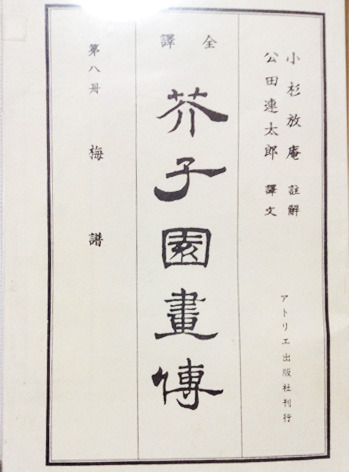 小杉放庵 註解
公田連太郎 譯文
アトリエ出版社刊行
全譯
芥子園畫傳
第八册 梅譜